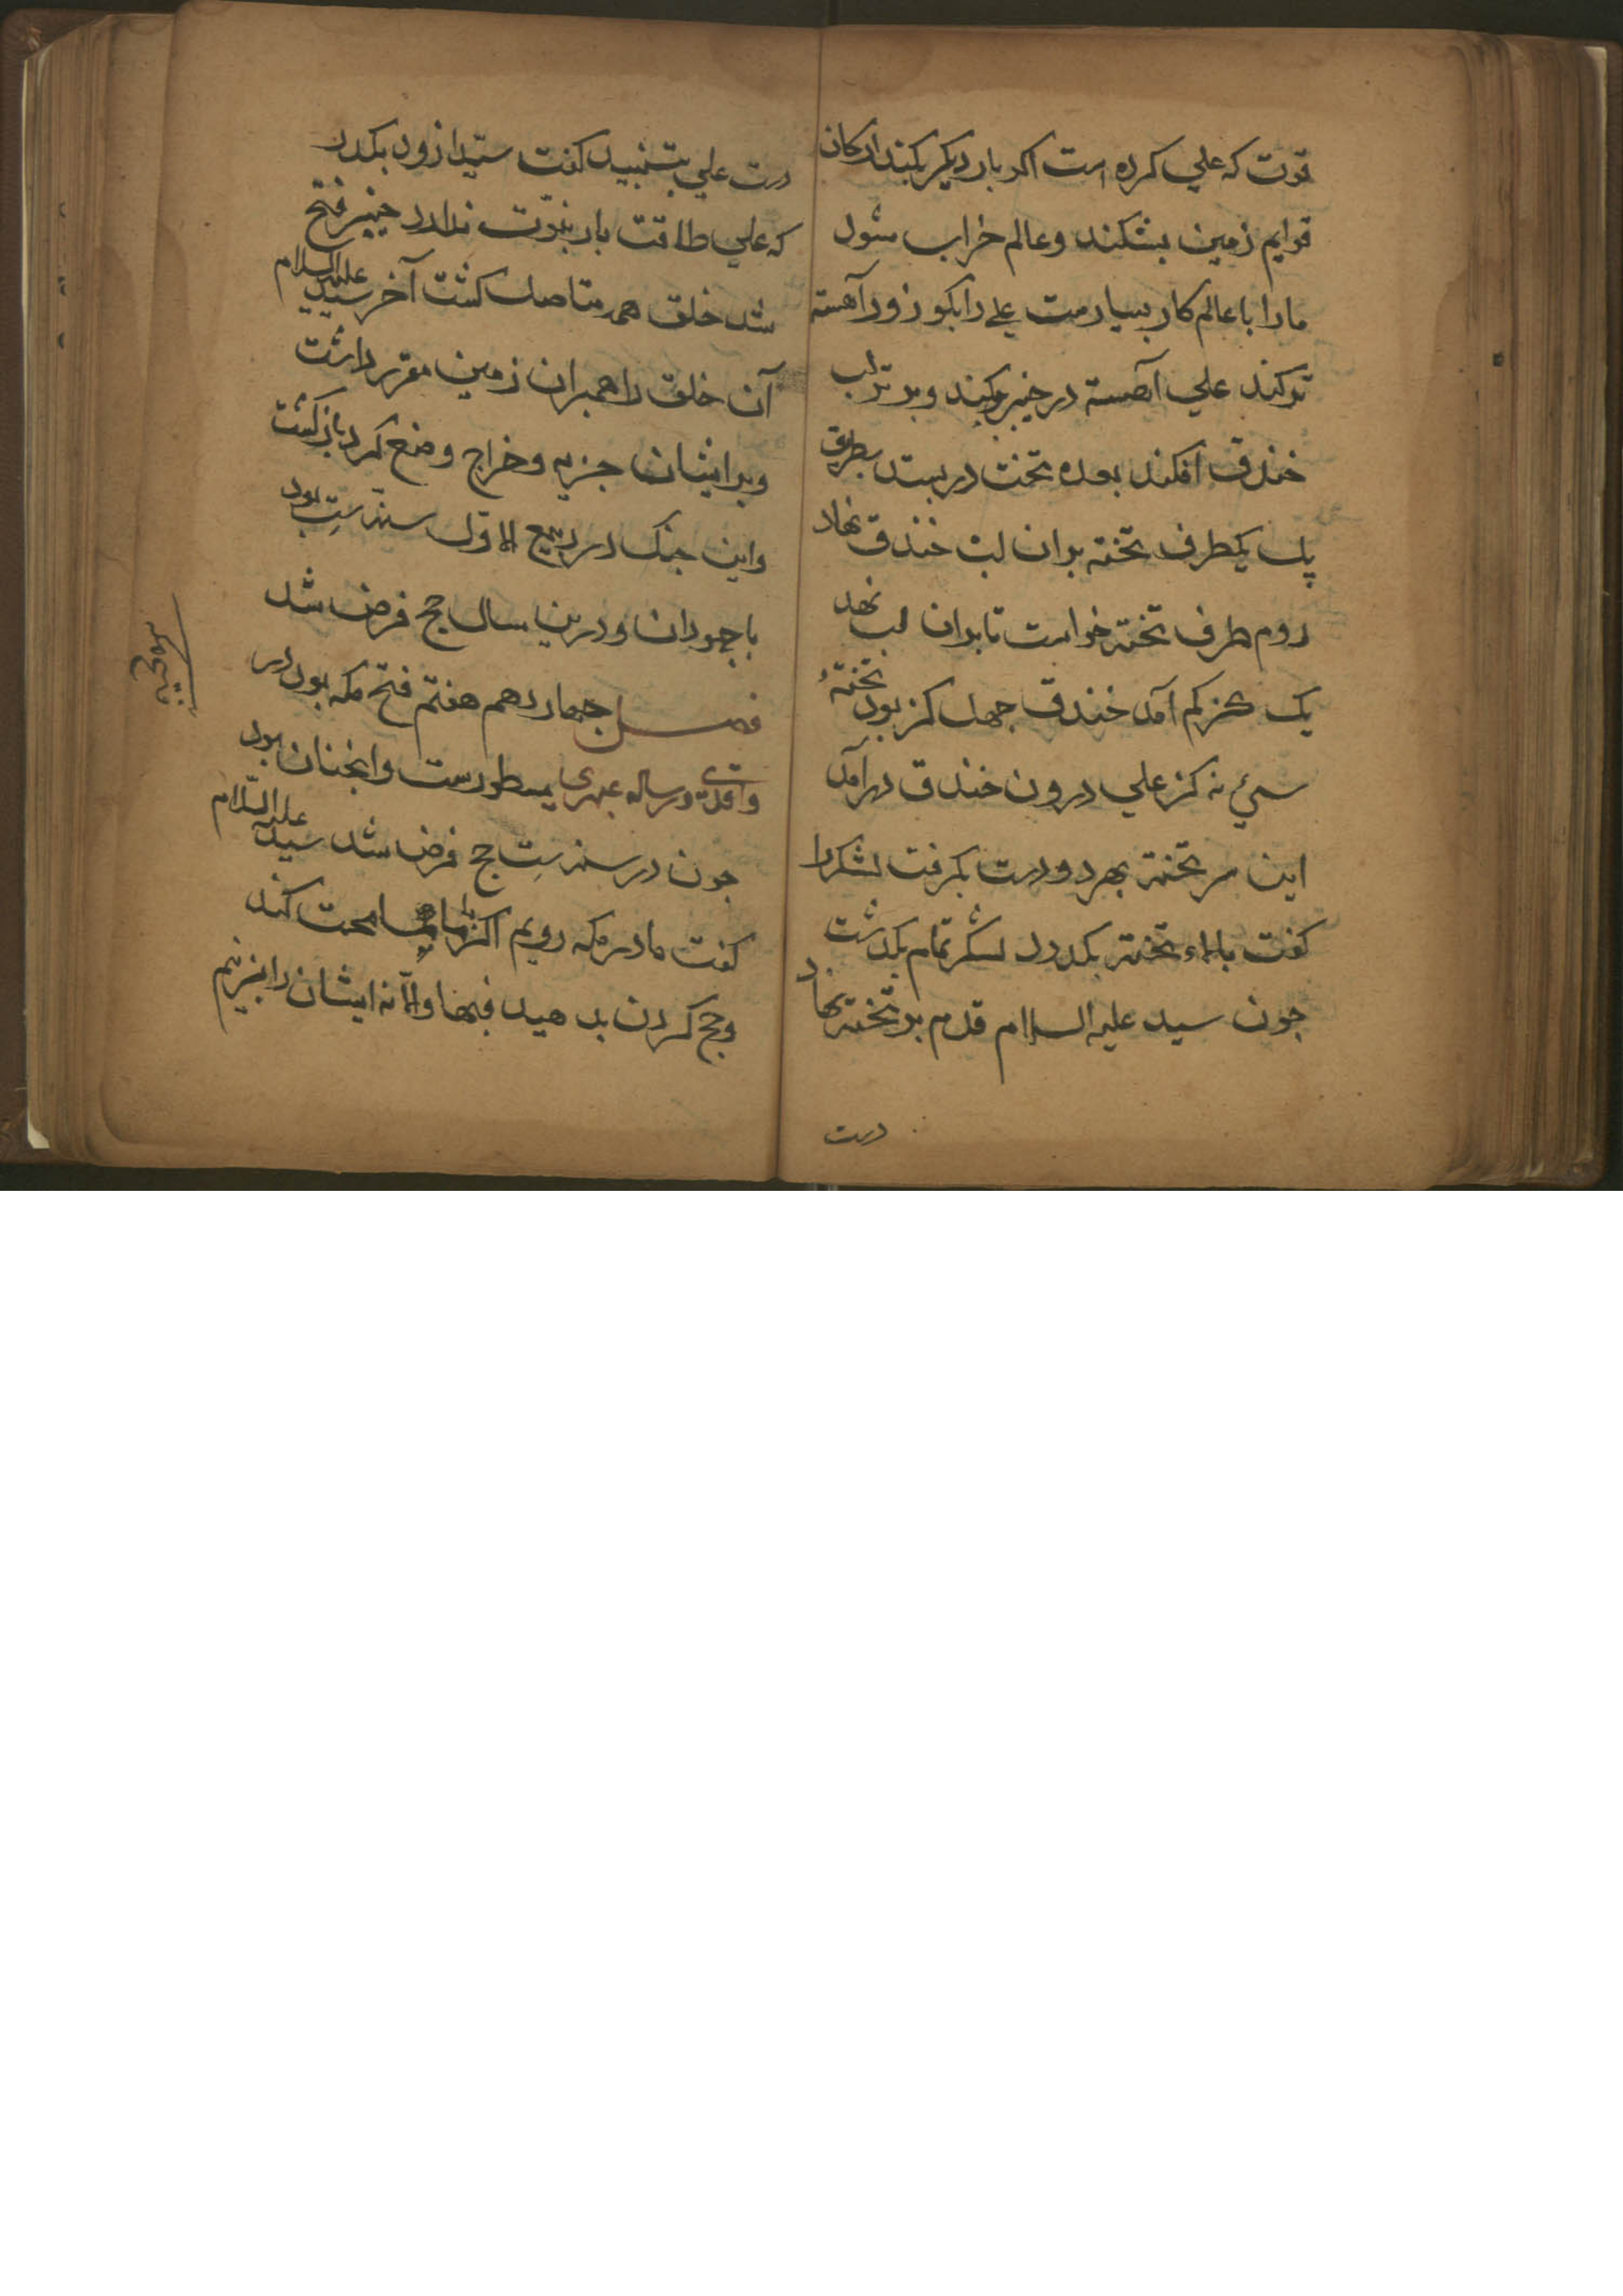 قوت که علي کرده است اکر بار دیکر بکند ارکان
قوایم زمین بشکند و عالم خراب شود
مارا با عالم کار بسیارست علي را بکو زور آهسته
تر کند علي آهسته در خیبر بکند و بر لب
خندق افکند بعده تخت در بستد بطریق
پل یکطرف تخته بران لب خندق نهاد
دوم طرف تخته خواست تا بران لب نهد
یک کز کم آمد خندق چهل کز بود تختهٔ
سي نه کز علي درون خندق درآمد
این سر تخته بهر دو دست بکرفت لشکر را
کفت بالاء تخته بکذرد لشکر تمام بکذشت
چون سید علیه السلام قدم بر تخته نهاد
دست
دست علي بجنبید کفت سید ازود بکذرد
که علي طاقت بار نبوّت ندارد خیبر فتح
شد خلق همه متاصل کشت آخر سید علیه السلام
آن خلق را همبران زمین مقرر داشت
وبر ایشان جزیه و خراج وضع کرد بازکشت
واین جنک در ربیع الاوّل سنه ستِ بود
با جهودان و درین سال حج فرض شد
فصل چهاردهم هفتم فتح مکه بود در
واقدي در ساله عبهری مسطورست وانچنان بود
چون در سنه ستِ حج فرض شد سید علیه السّلام
کفت ما در مکه رویم اکر با ما مسامحت کند
وحج کردن بدهید فبها والّا نه ایشان را بزنیم